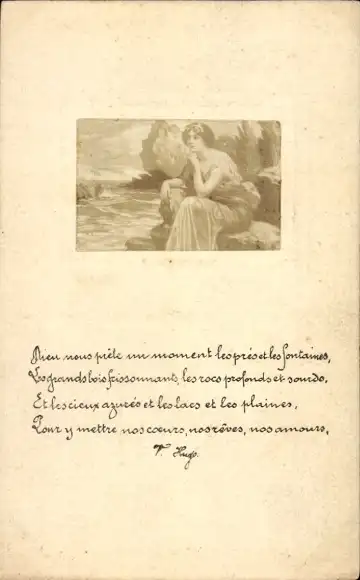 Dieu nous prête un moment les prés et les fontaines,
Les grands bois frissonnants, les rocs profonds et sourds,
Et les cieux azurés et les lacs et les plaines,
Pour y mettre nos cœurs, nos rêves, nos amours,
V. Hugo.